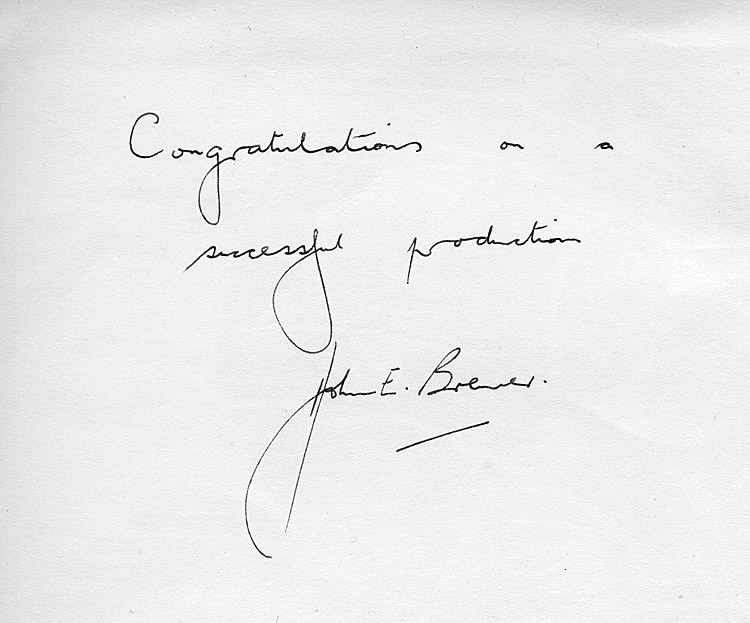 Congratulations on a
successful production
John E. Brewer.